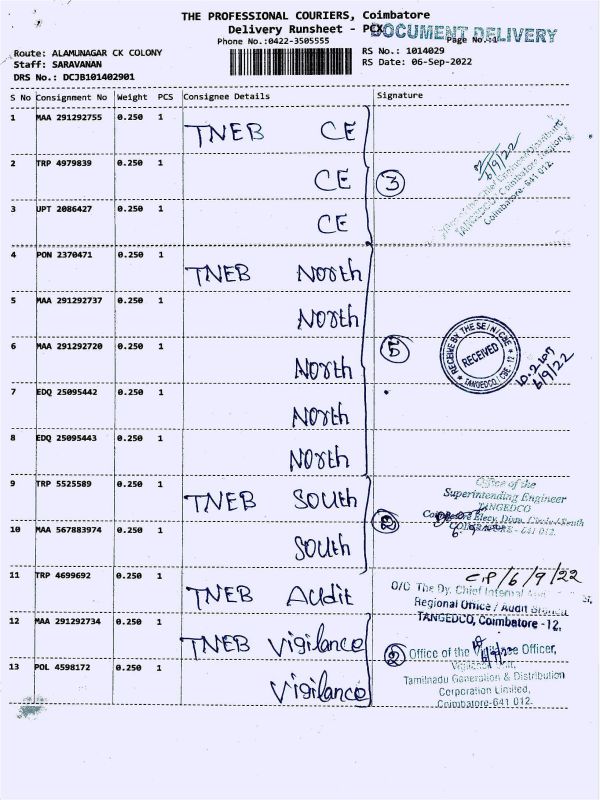 THE PROFESSIONAL COURIERS, Coimbatore
Delivery Runsheet - PCX
DOCUMENT DELIVERY
Phone No.:0422-3505555
Page No.:1
Route: ALAMUNAGAR CK COLONY
RS No.: 1014029
Staff: SARAVANAN
RS Date: 06-Sep-2022
DRS No.: DCJB101402901
S No Consignment No Weight PCS Consignee Details Signature
1 MAA 291292755 0.250 1 TNEB CE
6/9/22
TANGEDCO, Coimbatore Region,
Coimbatore-641 012.
2 TRP 4979839 0.250 1 CE 3
3 UPT 2086427 0.250 1 CE
4 PON 2370471 0.250 1 TNEB North
5 MAA 291292737 0.250 1 North
6 MAA 291292720 0.250 1 North 5
RECEIVE BY THE SE/N/CBE
RECEIVED
TANGEDCO / CBE - 12
6/9/22
7 EDQ 25095442 0.250 1 North
8 EDQ 25095443 0.250 1 North
9 TRP 5525589 0.250 1 TNEB South
Office of the
Superintending Engineer
TANGEDCO
Coimbatore Elecy. Distn. Circle / South
COIMBATORE - 641 012.
10 MAA 567883974 0.250 1 South 2
11 TRP 4699692 0.250 1 TNEB Audit
6/9/22
O/O The Dy. Chief Internal
Regional Office / Audit Branch
TANGEDCO, Coimbatore -12.
12 MAA 291292734 0.250 1 TNEB Vigilance
2
Office of the Vigilance Officer,
Vigilance Unit,
Tamilnadu Generation & Distribution
Corporation Limited,
Coimbatore-641 012.
13 POL 4598172 0.250 1 Vigilance